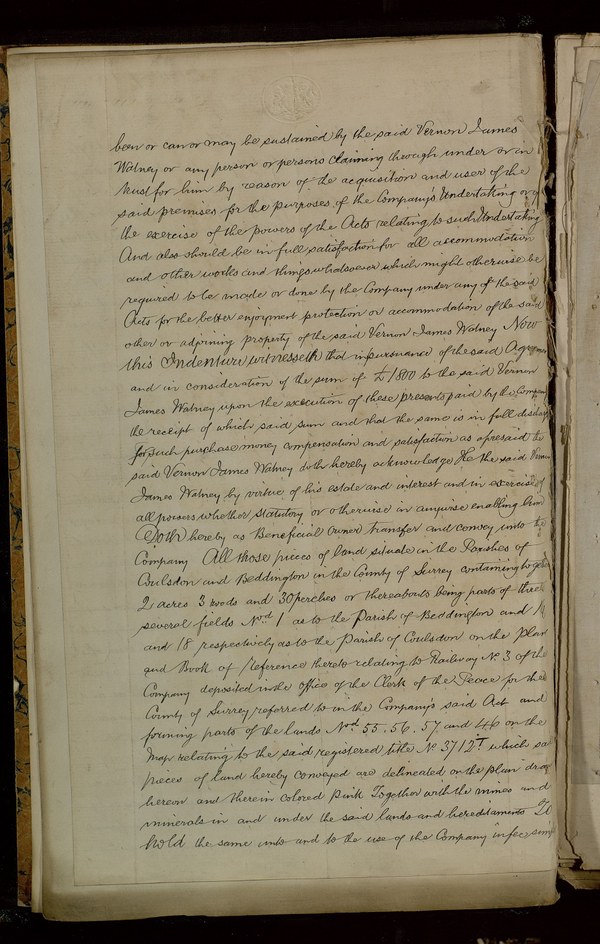 been or can or may be sustained by the said Vernon James
Watney or any person or persons claiming through under or in
trust for him by reason of the acquisition and user of the
said premises for the purposes of the Company's Undertaking or of
the exercise of the powers of the Acts relating to such Undertaking
And also should be in full satisfaction for all accommodation
and other works and things whatsoever which might otherwise be
required to be made or done by the Company under any of the said
Acts for the better enjoyment protection or accommodation of the said
other or adjoining property of the said Vernon James Watney Now
this Indenture witnesseth that in pursuance of the said
and in consideration of the sum of £1800 to the said Vernon
James Watney upon the execution of these presents paid by the
the receipt of which said sum and that the same is in full
for such purchase money compensation and satisfaction as aforesaid the
said Vernon James Watney doth hereby acknowledge He the said
James Watney by virtue of his estate and interest and in exercise of
all powers whether statutory or otherwise in anywise enabling him
Doth hereby as Beneficial Owner transfer and convey unto the
Company All those pieces of land situate in the Parishes of
Coulsdon and Beddington in the County of Surrey containing
2 acres 3 roods and 30 perches or thereabouts being parts of three
several fields Nod 1 as to the Parish of Beddington and
and 18 respectively as to the Parish of Coulsdon on the Plan
and Book of Reference thereto relating to Railway No. 3 of the
Company deposited in the Office of the Clerk of the Peace for the
County of Surrey referred to in the Company's said Act and
forming parts of the lands Nod 55. 56. 57 and 46 on the
Map relating to the said registered title No 3712T which
pieces of land hereby conveyed are delineated on the plan
hereon and therein colored Pink Together with the mines and
minerals in and under the said lands and hereditaments To
hold the same unto and to the use of the Company in fee